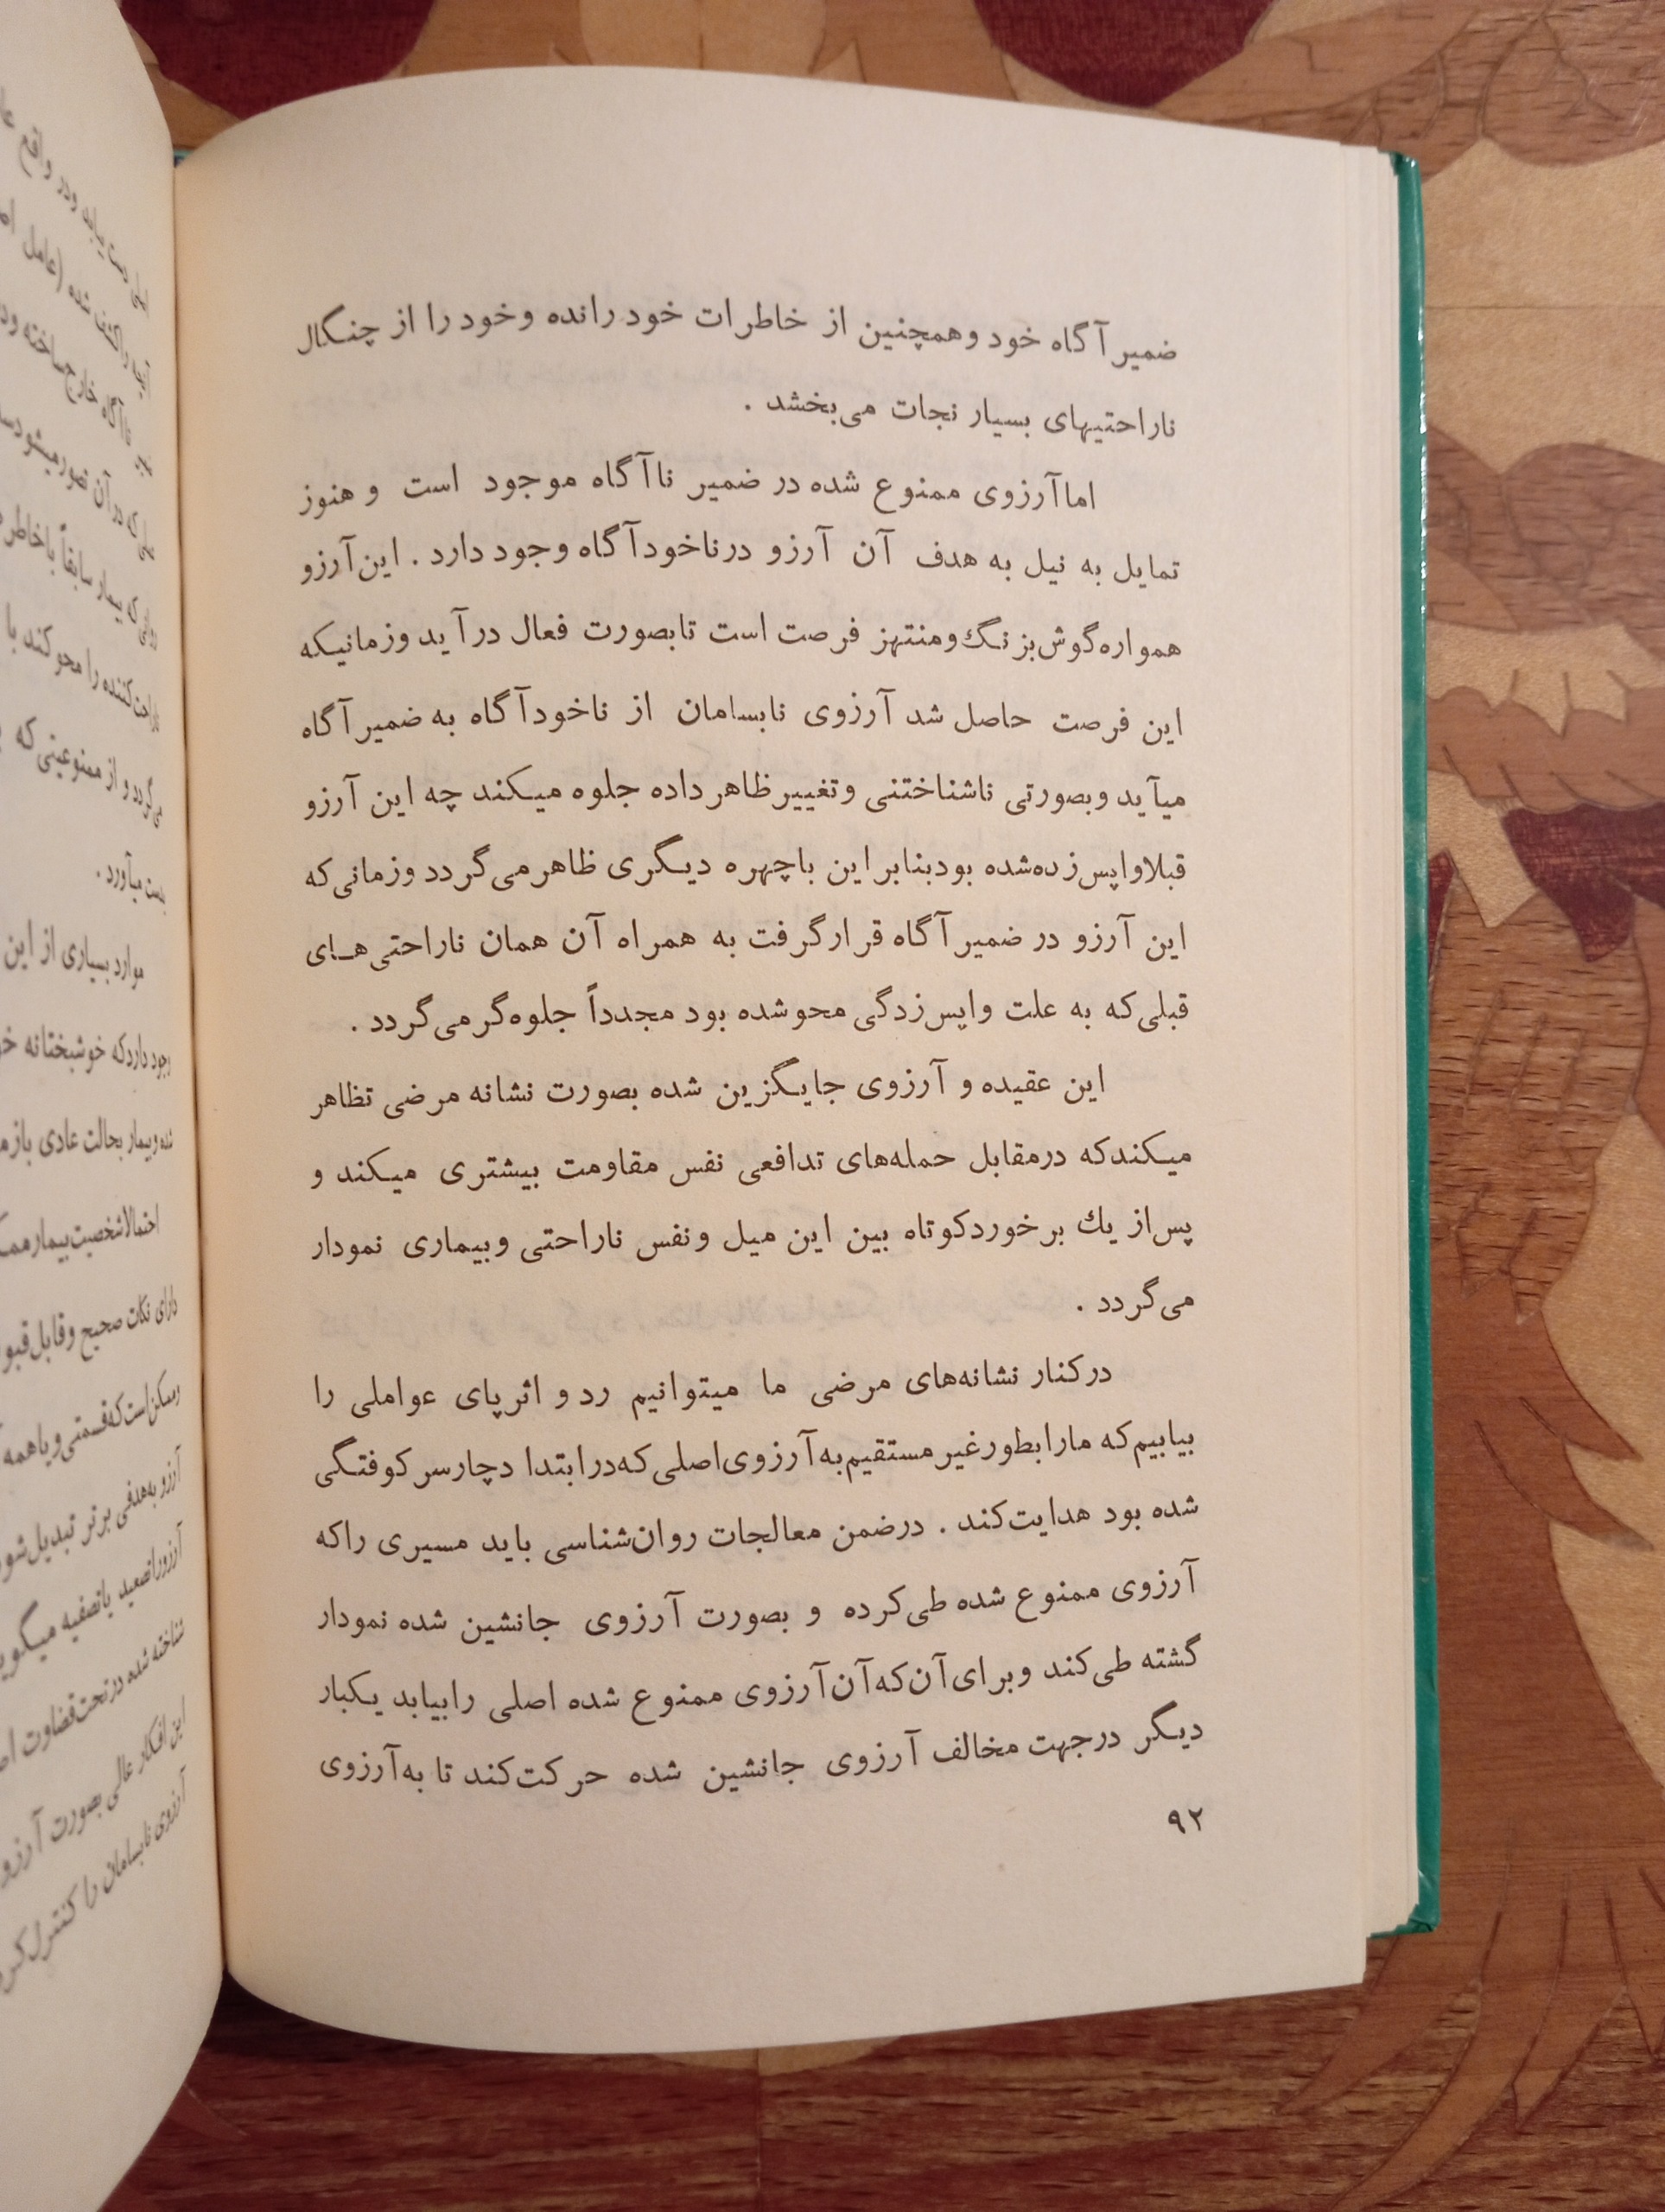 ضمیر آگاه خود وهمچنین از خاطرات خود رانده وخود را از چنگال
ناراحتیهای بسیار نجات می‌بخشد .
اماآرزوی ممنوع شده در ضمیر ناآگاه موجود است و هنوز
تمایل به نیل به هدف آن آرزو درناخودآگاه وجود دارد . این‌آرزو
همواره‌گوش‌بزنگ‌ومنتهز فرصت است تابصورت فعال درآید وزمانیکه
این فرصت حاصل شد آرزوی نابسامان از ناخودآگاه به ضمیرآگاه
میآید وبصورتی ناشناختنی وتغییرظاهرداده جلوه میکند چه این آرزو
قبلاواپس‌زده‌شده بودبنابراین باچهره دیگری ظاهرمی‌گردد وزمانی‌که
این آرزو در ضمیرآگاه قرارگرفت به همراه آن همان ناراحتی‌هـای
قبلی‌که به علت واپس‌زدگی محوشده بود مجدداً جلوه‌گرمی‌گردد .
این عقیده و آرزوی جایگزین شده بصورت نشانه مرضی تظاهر
میکندکه درمقابل حمله‌های تدافعی نفس مقاومت بیشتری میکند و
پس‌از یك برخوردکوتاه بین این میل ونفس ناراحتی وبیماری نمودار
می‌گردد .
درکنار نشانه‌های مرضی ما میتوانیم رد و اثرپای عواملی را
بیابیم‌که مارابطورغیرمستقیم‌به‌آرزوی‌اصلی‌که‌درابتدا دچارسرکوفتگی
شده بود هدایت‌کند . درضمن معالجات روان‌شناسی باید مسیری راکه
آرزوی ممنوع شده طی‌کرده و بصورت آرزوی جانشین شده نمودار
گشته طی‌کند وبرای‌آن‌که‌آن‌آرزوی ممنوع شده اصلی رابیابد یکبار
دیگر درجهت مخالف آرزوی جانشین شده حرکت‌کند تا به‌آرزوی
۹۲
بدست میآورد .
موارد بسیاری از این
وجود داردکه خوشبختانه
شده‌وبیمار بحالت عادی
احتمالاشخصیت‌بیمار
دارای نکات صحیح وقابل